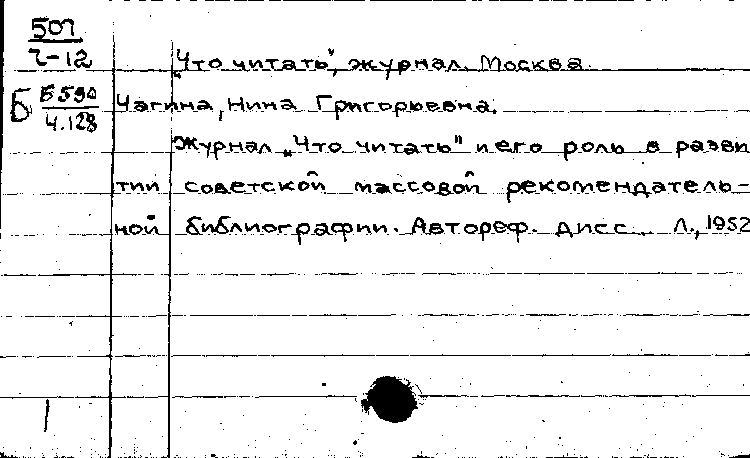 507
Ч-12
„Что читать", журнал. Москва.
Б Б590
Ч.128
Чагина, Нина Григорьевна.
Журнал „Что читать" и его роль в разви
тии советской массовой рекомендатель-
ной библиографии. Автореф. дисс. Л., 1952